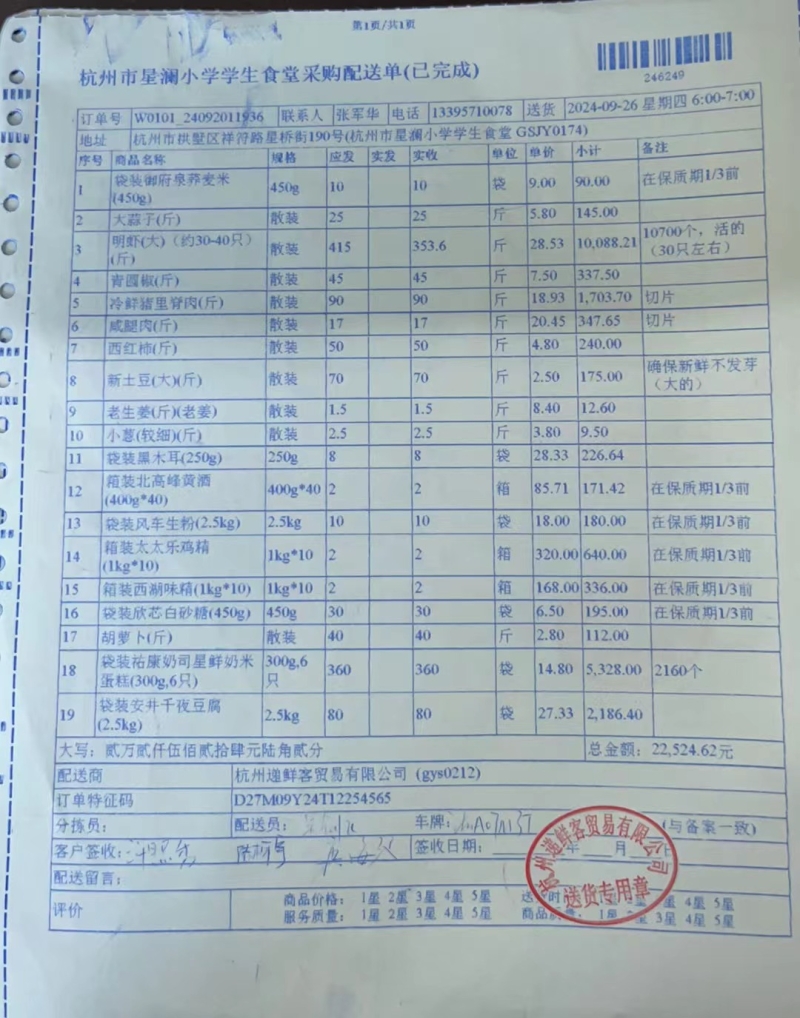 第1页/共1页
杭州市星澜小学学生食堂采购配送单(已完成)
246249
订单号 W0101_24092011936 联系人 张军华 电话 13395710078 送货 2024-09-26 星期四 6:00-7:00
地址 杭州市拱墅区祥符路星桥街190号(杭州市星澜小学学生食堂 GSJY0174)
序号 商品名称 规格 应发 实发 实收 单位 单价 小计 备注
1 袋装御府泉荞麦米(450g) 450g 10 10 袋 9.00 90.00 在保质期1/3前
2 大蒜子(斤) 散装 25 25 斤 5.80 145.00
3 明虾(大)（约30-40只）(斤) 散装 415 353.6 斤 28.53 10,088.21 10700个，活的（30只左右）
4 青圆椒(斤) 散装 45 45 斤 7.50 337.50
5 冷鲜猪里脊肉(斤) 散装 90 90 斤 18.93 1,703.70 切片
6 咸腿肉(斤) 散装 17 17 斤 20.45 347.65 切片
7 西红柿(斤) 散装 50 50 斤 4.80 240.00
8 新土豆(大)(斤) 散装 70 70 斤 2.50 175.00 确保新鲜不发芽（大的）
9 老生姜(斤)(老姜) 散装 1.5 1.5 斤 8.40 12.60
10 小葱(较细)(斤) 散装 2.5 2.5 斤 3.80 9.50
11 袋装黑木耳(250g) 250g 8 8 袋 28.33 226.64
12 箱装北高峰黄酒(400g*40) 400g*40 2 2 箱 85.71 171.42 在保质期1/3前
13 袋装风车生粉(2.5kg) 2.5kg 10 10 袋 18.00 180.00 在保质期1/3前
14 箱装太太乐鸡精(1kg*10) 1kg*10 2 2 箱 320.00 640.00 在保质期1/3前
15 箱装西湖味精(1kg*10) 1kg*10 2 2 箱 168.00 336.00 在保质期1/3前
16 袋装欣芯白砂糖(450g) 450g 30 30 袋 6.50 195.00 在保质期1/3前
17 胡萝卜(斤) 散装 40 40 斤 2.80 112.00
18 袋装祐康奶司星鲜奶米蛋糕(300g,6只) 300g,6只 360 360 袋 14.80 5,328.00 2160个
19 袋装安井千夜豆腐(2.5kg) 2.5kg 80 80 袋 27.33 2,186.40
大写：贰万贰仟伍佰贰拾肆元陆角贰分 总金额：22,524.62元
配送商 杭州递鲜客贸易有限公司 (gys0212)
订单特征码 D27M09Y24T12254565
分拣员： 配送员： 车牌： (与备案一致)
客户签收： 签收日期：____年___月
配送留言：
评价 商品价格： 1星 2星 3星 4星 5星 送 时 1星 星 3星 4星 5星
服务质量： 1星 2星 3星 4星 5星 商品质量： 1星 星 3星 4星 5星
杭州递鲜客贸易有限公司
送货专用章